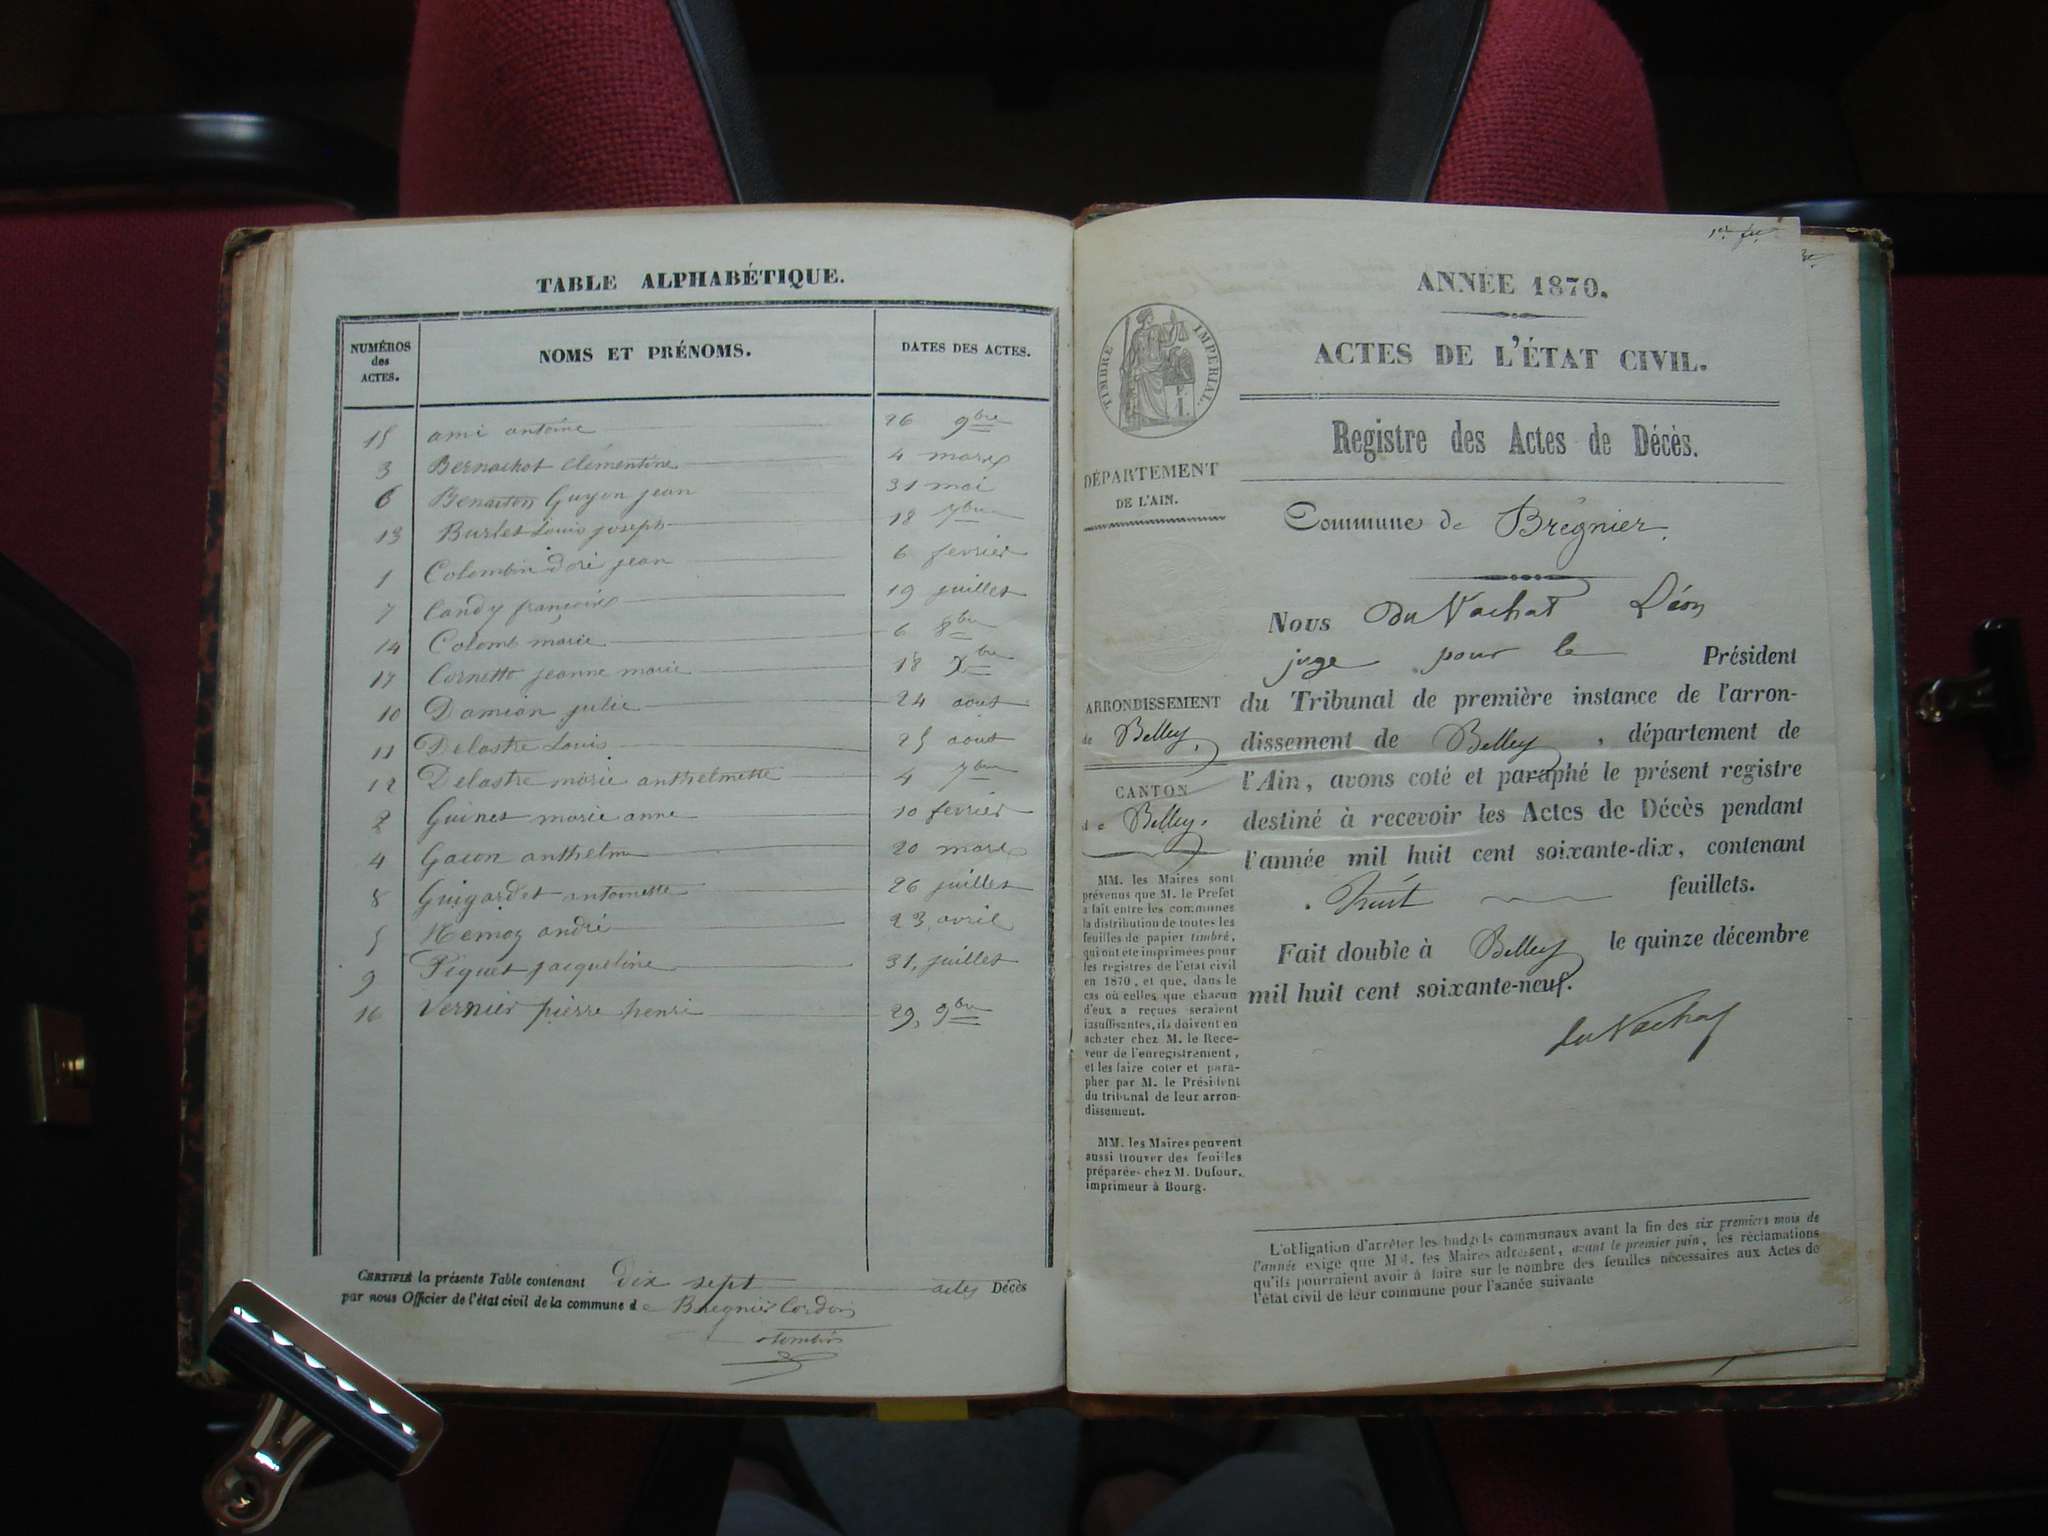 TABLE ALPHABÉTIQUE.
NUMÉROS des ACTES. NOMS ET PRÉNOMS. DATES DES ACTES.
15 ami antoine 26 9bre
3 Bernachot Clémentine 4 mars
6 Guyon jean 31 mai
13 Burlet Louis joseph 18 7bre
1 Colombin doré jean 6 fevrier
7 Candy françoise 19 juillet
14 Colomb marie 6 8bre
17 Cornette jeanne marie 18 Xbre
10 Damian julie 24 aout
11 Delastre Louis 25 aout
12 Delastre marie anthelmette 4 7bre
2 Guinet marie anne 10 fevrier
4 Gacon anthelm 20 mars
8 Guigardet antoinette 26 juillet
5 Hemoz andré 23, avril
9 Piquet jacqueline 31, juillet
16 Vernier pierre henri 29, 9bre
CERTIFIÉ la présente Table contenant Dix sept actes Décès
par nous Officier de l'état civil de la commune de Bregnier Cordon
1er
ANNÉE 1870.
TIMBRE IMPERIAL.
ACTES DE L'ÉTAT CIVIL.
Registre des Actes de Décès.
DÉPARTEMENT
DE L'AIN.
Commune de Brégnier.
Nous Du Vachat Léon
juge pour le Président
du Tribunal de première instance de l'arron-
dissement de Belley, département de
l'Ain, avons coté et paraphé le présent registre
destiné à recevoir les Actes de Décès pendant
l'année mil huit cent soixante-dix, contenant
huit feuillets.
Fait double à Belley le quinze décembre
mil huit cent soixante-neuf.
du Vachat
ARRONDISSEMENT
de Belley,
CANTON
de Belley.
MM. les Maires sont
prévenus que M. le Prefet
a fait entre les communes
la distribution de toutes les
feuilles de papier timbré,
qui ont été imprimées pour
les registres de l'état civil
en 1870, et que, dans le
cas où celles que chacun
d'eux a reçues seraient
insuffisantes, ils doivent en
acheter chez M. le Rece-
veur de l'enregistrement,
et les faire coter et para-
pher par M. le Président
du tribunal de leur arron-
dissement.
MM. les Maires peuvent
aussi trouver des feuilles
préparées chez M. Dufour,
imprimeur à Bourg.
L'obligation d'arrêter les budgets communaux avant la fin des six premiers mois de
l'année exige que MM. les Maires adressent, avant le premier juin, les réclamations
qu'ils pourraient avoir à faire sur le nombre des feuilles nécessaires aux Actes de
l'état civil de leur commune pour l'année suivante